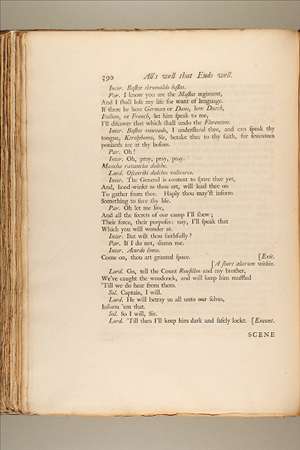 390 All's well that Ends well.
Inter. Boskos thromuldo boskos.
Par. I know you are the Muskos regiment,
And I shall lose my life for want of language.
If there be here German or Dane, low Dutch,
Italian, or French, let him speak to me,
I'll discover that which shall undo the Florentine.
Inter. Boskos vauvado, I understand thee, and can speak thy
tongue, Kerelybonto, Sir, betake thee to thy faith, for seventeen
poniards are at thy bosom.
Par. Oh!
Inter. Oh, pray, pray, pray.
Mancha ravancha dulche.
Lord. Osceoribi dulchos volivorco.
Inter. The General is content to spare thee yet,
And, hood-winkt as thou art, will lead thee on
To gather from thee. Haply thou may'st inform
Something to save thy life.
Par. Oh let me live,
And all the secrets of our camp I'll shew;
Their force, their purposes: nay, I'll speak that
Which you will wonder at.
Inter. But wilt thou faithfully?
Par. If I do not, damn me.
Inter. Acordo linta.
Come on, thou art granted space. [Exit.
[A short alarum within.
Lord. Go, tell the Count Rousillon and my brother,
We're caught the woodcock, and will keep him muffled
'Till we do hear from them.
Sol. Captain, I will.
Lord. He will betray us all unto our selves,
Inform 'em that.
Sol. So I will, Sir.
Lord. 'Till then I'll keep him dark and safely lockt. [Exeunt.
SCENE